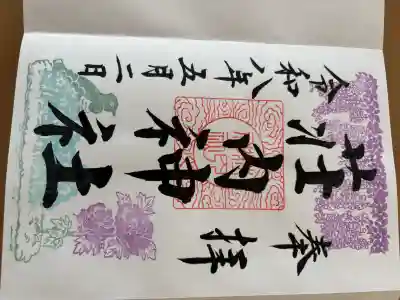 奉拝
荘内神社
令和八年五月二日